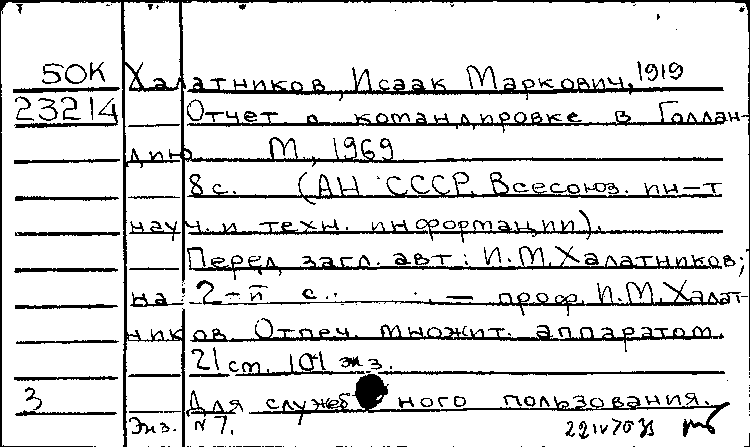 50К Халатников, Исаак Маркович, 1919
23214 Отчет о командировке в Голлан-
дию М., 1969
8 с. (АН СССР. Всесоюз. ин-т
науч. и техн. информации).
Перед загл. авт: И.М.Халатников;
на 2-й с.: — проф. И.М.Халат-
ников. Отпеч. множит. аппаратом.
21 ст. 101 экз.
3 Для служебного пользования.
Экз. N 7.